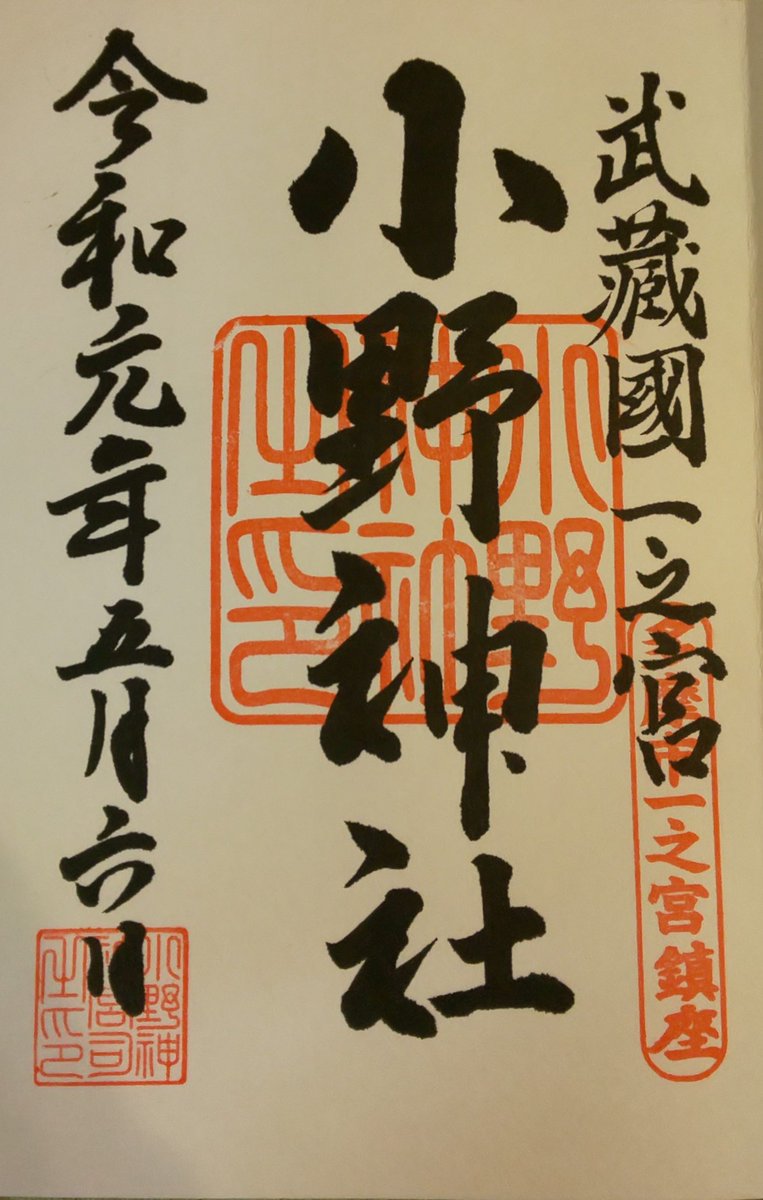 武藏國一之宮
多摩市一之宮鎮座
小野神社
小野
神社
之印
令和元年五月六日
小野神
社宮司
之印